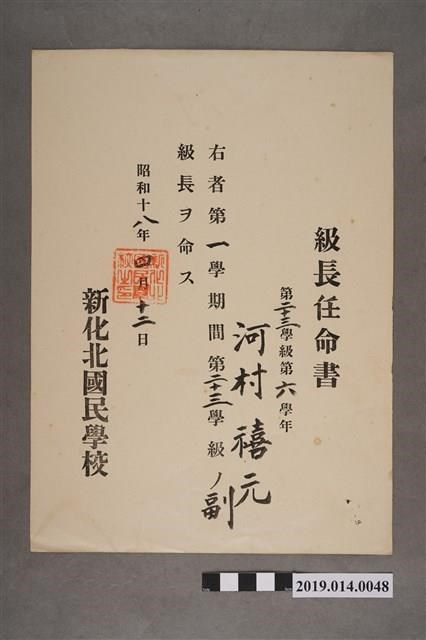 級長任命書
第二十三學級第六學年
河村禧元
右者第一學期間第二十三學級ノ副
級長ヲ命ス
昭和十八年四月十二日
新化北國民學校
2019.014.0048